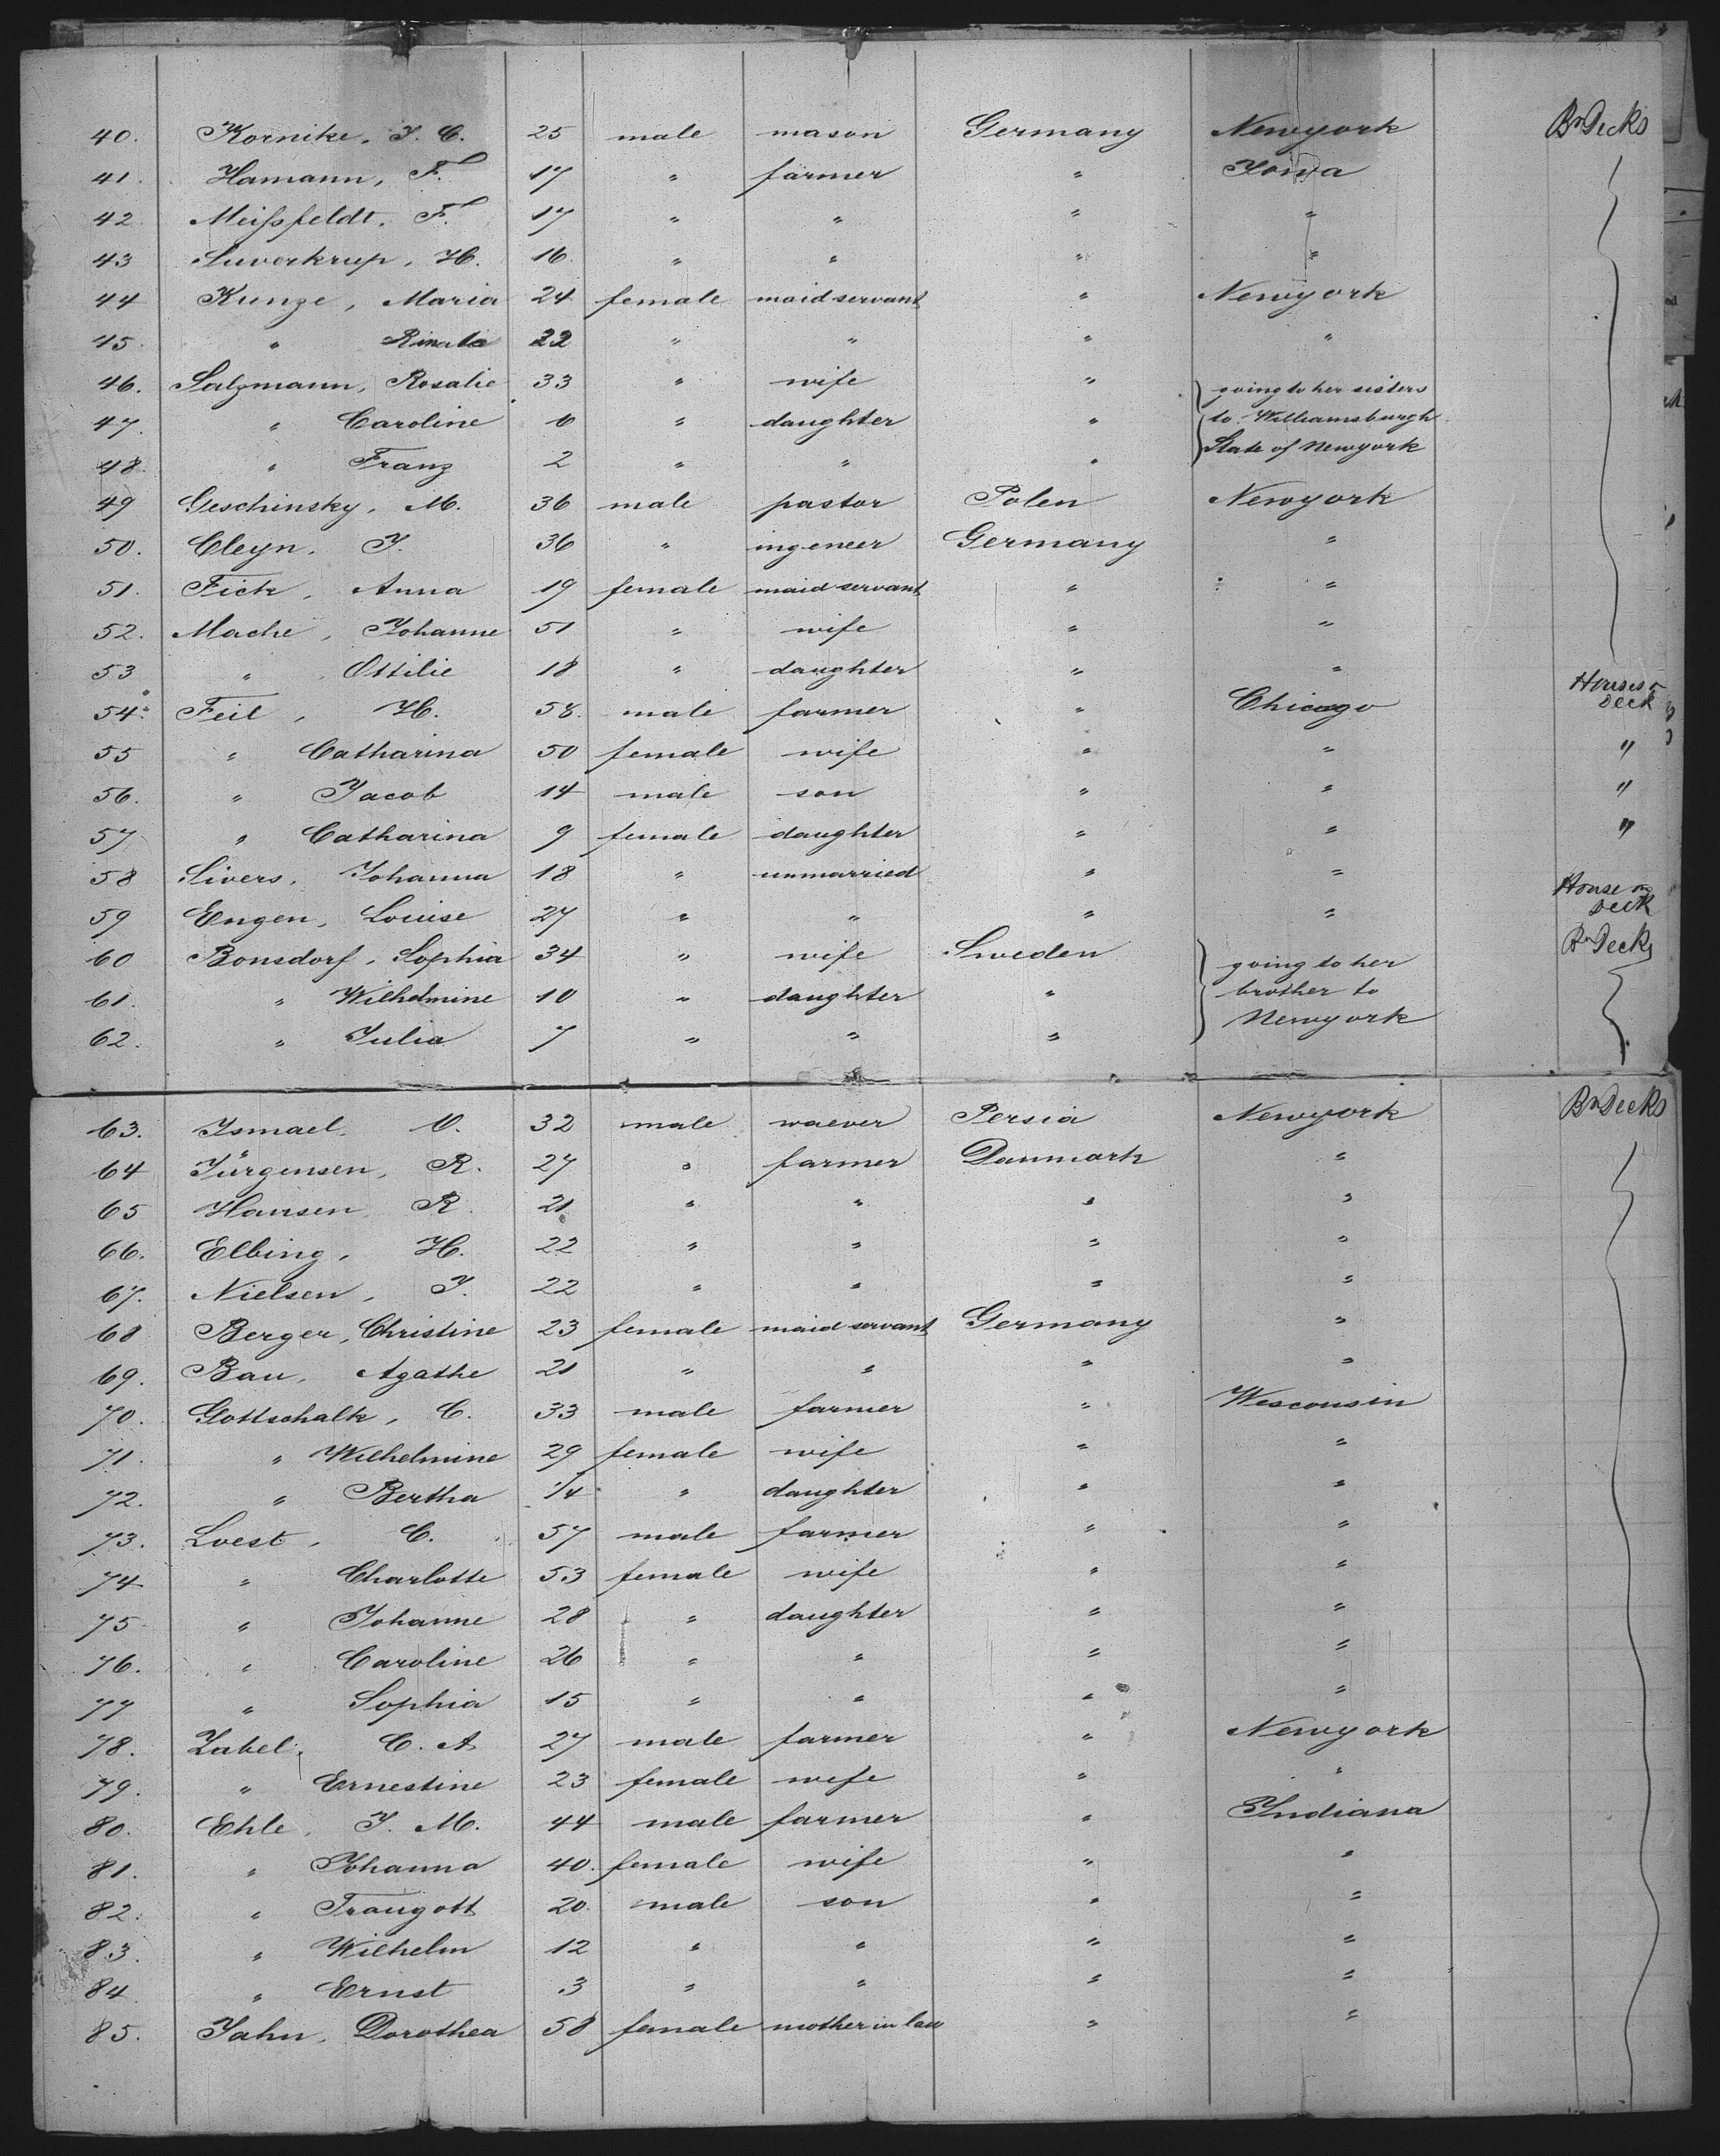 40. Kornike, J. C. 25 male mason Germany Newyork Bn Decks
41. Hamann, F. 17 " farmer " Iowa
42. Meissfeldt, F. 17 " " " "
43 Suverkrup, H. 16 " " " "
44 Kunze, Maria 24 female maid servant " Newyork
45. " Rinate 22 " " " "
46. Salzmann, Rosalie 33 " wife " going to her sisters
47. " Caroline 6 " daughter " to Williamsburgh
48. " Franz 2 " " " State of Newyork
49 Geschinsky, M. 36 male pastor Polen Newyork
50. Cleyn, J. 36 " ingeneer Germany "
51. Fick, Anna 19 female maid servant " "
52. Mache, Johanne 51 " wife " "
53 " Ottilie 18 " daughter " "
54. Feil, H. 58. male farmer " Chicago House on Deck
55 " Catharina 50 female wife " " "
56. " Jacob 14 male son " " "
57 " Catharina 9 female daughter " " "
58 Sivers, Johanna 18 " unmarried " "
59 Engen, Louise 27 " " " " House on Deck
60 Bonsdorf, Sophia 34 " wife Sweden going to her Bn Decks
61. " Wilhelmine 10 " daughter " brother to
62. " Julia 7 " " " Newyork
63. Ismael, O. 32 male waever Persia Newyork Bn Decks
64 Jürgensen, R. 27 " farmer Danmark "
65 Hansen, R. 21 " " " "
66. Elbing, H. 22 " " " "
67. Nielsen, J. 22 " " " "
68 Berger, Christine 23 female maid servant Germany "
69. Bau, Agathe 21 " " " "
70. Gottschalk, C. 33 male farmer " Wesconsin
71. " Wilhelmine 29 female wife " "
72. " Bertha 1/4 " daughter " "
73. Loest, C. 57 male farmer " "
74 " Charlotte 53 female wife " "
75 " Johanne 28 " daughter " "
76. " Caroline 26 " " " "
77 " Sophia 15 " " " "
78. Zabel, C. A 27 male farmer " Newyork
79. " Ernestine 23 female wefe " "
80. Ehle, J. M. 44 male farmer " Indiana
81. " Johanna 40. female wife " "
82. " Traugott 20. male son " "
83. " Wilhelm 12 " " " "
84 " Ernst 3 " " " "
85. Jahn, Dorothea 58 female mother in law " "